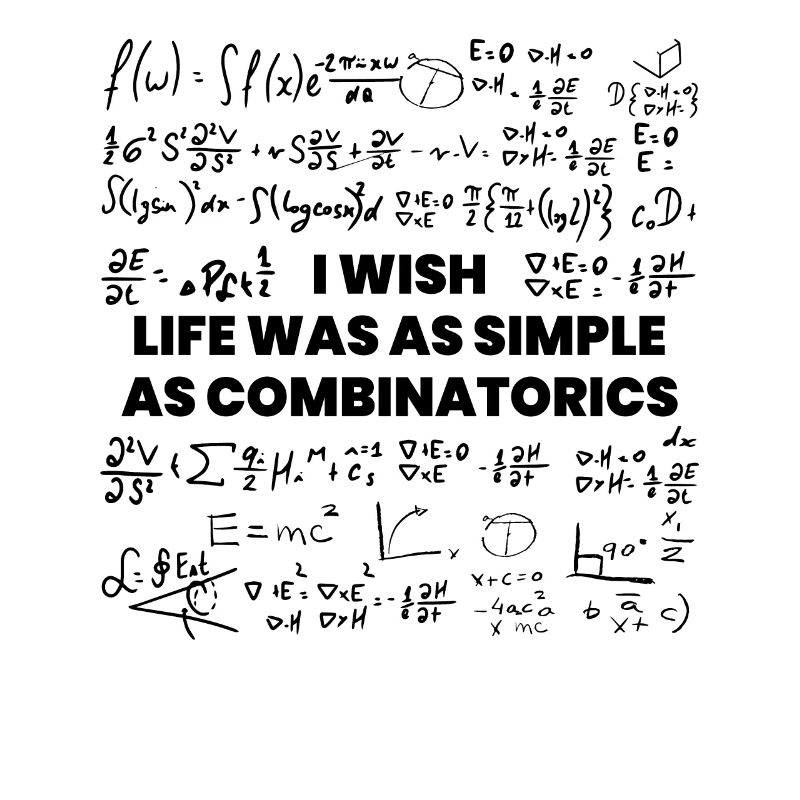 f(ω) = ∫f(x)e -2πixω / dQ E=0 ∇·H=0
∇·H = 1/c ∂E/∂t D{∇·H=0 ∇×H=}
1/2 σ² S² ∂²V/∂S² + r S ∂V/∂S + ∂V/∂t - r·V = ∇·H=0 ∇×H= 1/c ∂E/∂t E=0 E=
∫(lgsin)²dx - ∫(logcosx)²d ∇+E=0 ∇×E π/2{π/12+(log2)²} c₀D+
∂E/∂t = 1/2 I WISH ∇+E=0 ∇×E = -1/c ∂H/∂t
LIFE WAS AS SIMPLE
AS COMBINATORICS
∂²V/∂S² + ∑ qi/2 Hi M + n=1 Cs ∇+E=0 ∇×E -1/c ∂H/∂t ∇·H=0 ∇×H= 1/c ∂E/∂t dx
E=mc² x 90° x₁/2
∇+E²= ∇×E² = -1/c ∂H/∂t x+c=0
∇·H ∇×H -4ac²a b a x+ c)
x mc